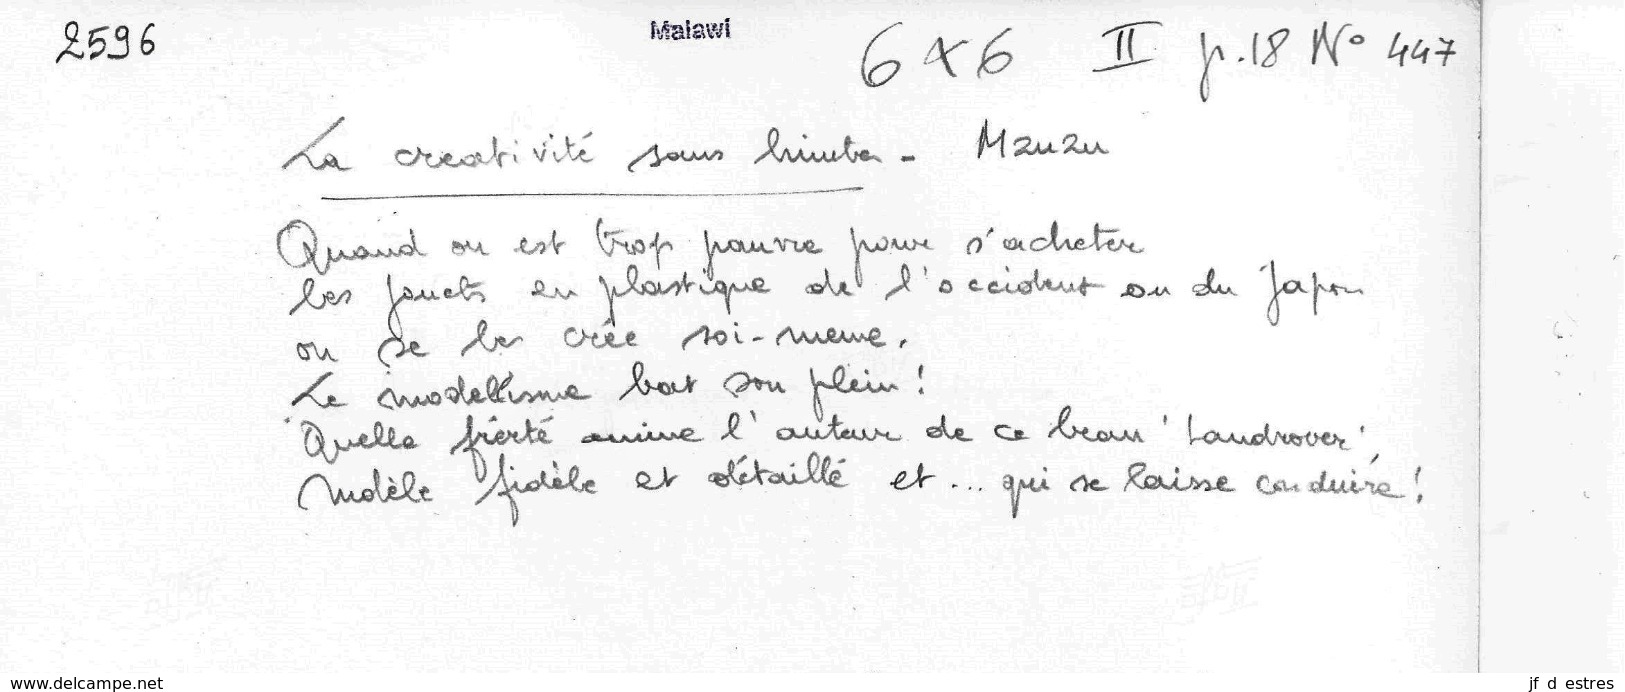 2596
Malawi
6x6 II p.18 N° 447
La creativité sans limites - Mzuzu
Quand on est trop pauvre pour s'acheter
les jouets en plastique de l'occident ou du Japon
on se les crée soi-meme.
Le modellisme bat son plein !
Quelle fierté anime l'auteur de ce beau 'Landrover',
modèle fidèle et détaillé et ... qui se laisse conduire !
www.delcampe.net
jf d estres